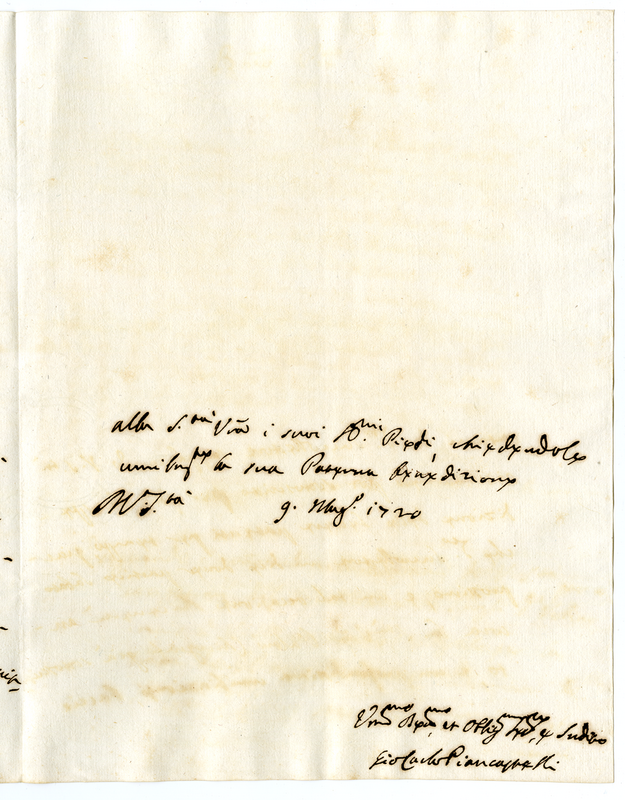 alla S.tà Vra i suoi S.mi Piedi, chiedendole
umilmte la sua Paterna Benedizione
9. Magg.o 1720
Umo et Obligmo Servre, e Suddito
Gio Carlo Piancastelli